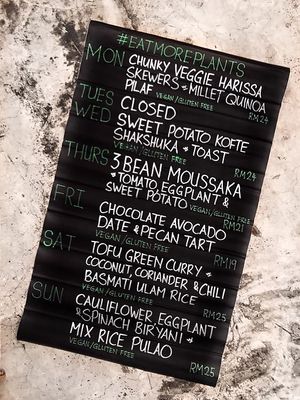 #EATMOREPLANTS
MON CHUNKY VEGGIE HARISSA
SKEWERS + MILLET QUINOA
PILAF VEGAN/GLUTEN FREE RM24
TUES CLOSED
WED SWEET POTATO KOFTE
SHAKSHUKA + TOAST
VEGAN/GLUTEN FREE RM24
THURS 3 BEAN MOUSSAKA
+ TOMATO, EGGPLANT &
SWEET POTATO VEGAN/GLUTEN FREE
RM21
FRI CHOCOLATE AVOCADO
DATE & PECAN TART
VEGAN/GLUTEN FREE RM19
SAT TOFU GREEN CURRY +
COCONUT, CORIANDER & CHILI
BASMATI ULAM RICE
VEGAN/GLUTEN FREE RM25
SUN CAULIFLOWER, EGGPLANT
& SPINACH BIRYANI +
MIX RICE PULAO
VEGAN/GLUTEN FREE RM25